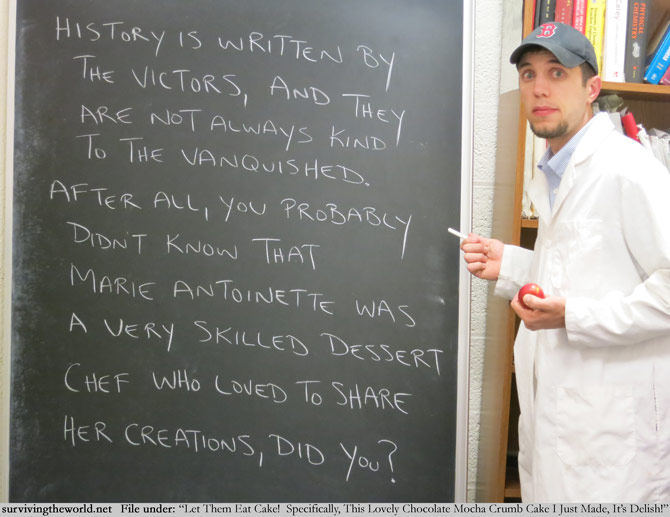 HISTORY IS WRITTEN BY
THE VICTORS, AND THEY
ARE NOT ALWAYS KIND
TO THE VANQUISHED.
AFTER ALL, YOU PROBABLY
DIDN'T KNOW THAT
MARIE ANTOINETTE WAS
A VERY SKILLED DESSERT
CHEF WHO LOVED TO SHARE
HER CREATIONS, DID YOU?
B
PHYSICAL CHEMISTRY
survivingtheworld.net File under: "Let Them Eat Cake! Specifically, This Lovely Chocolate Mocha Crumb Cake I Just Made, It's Delish!"